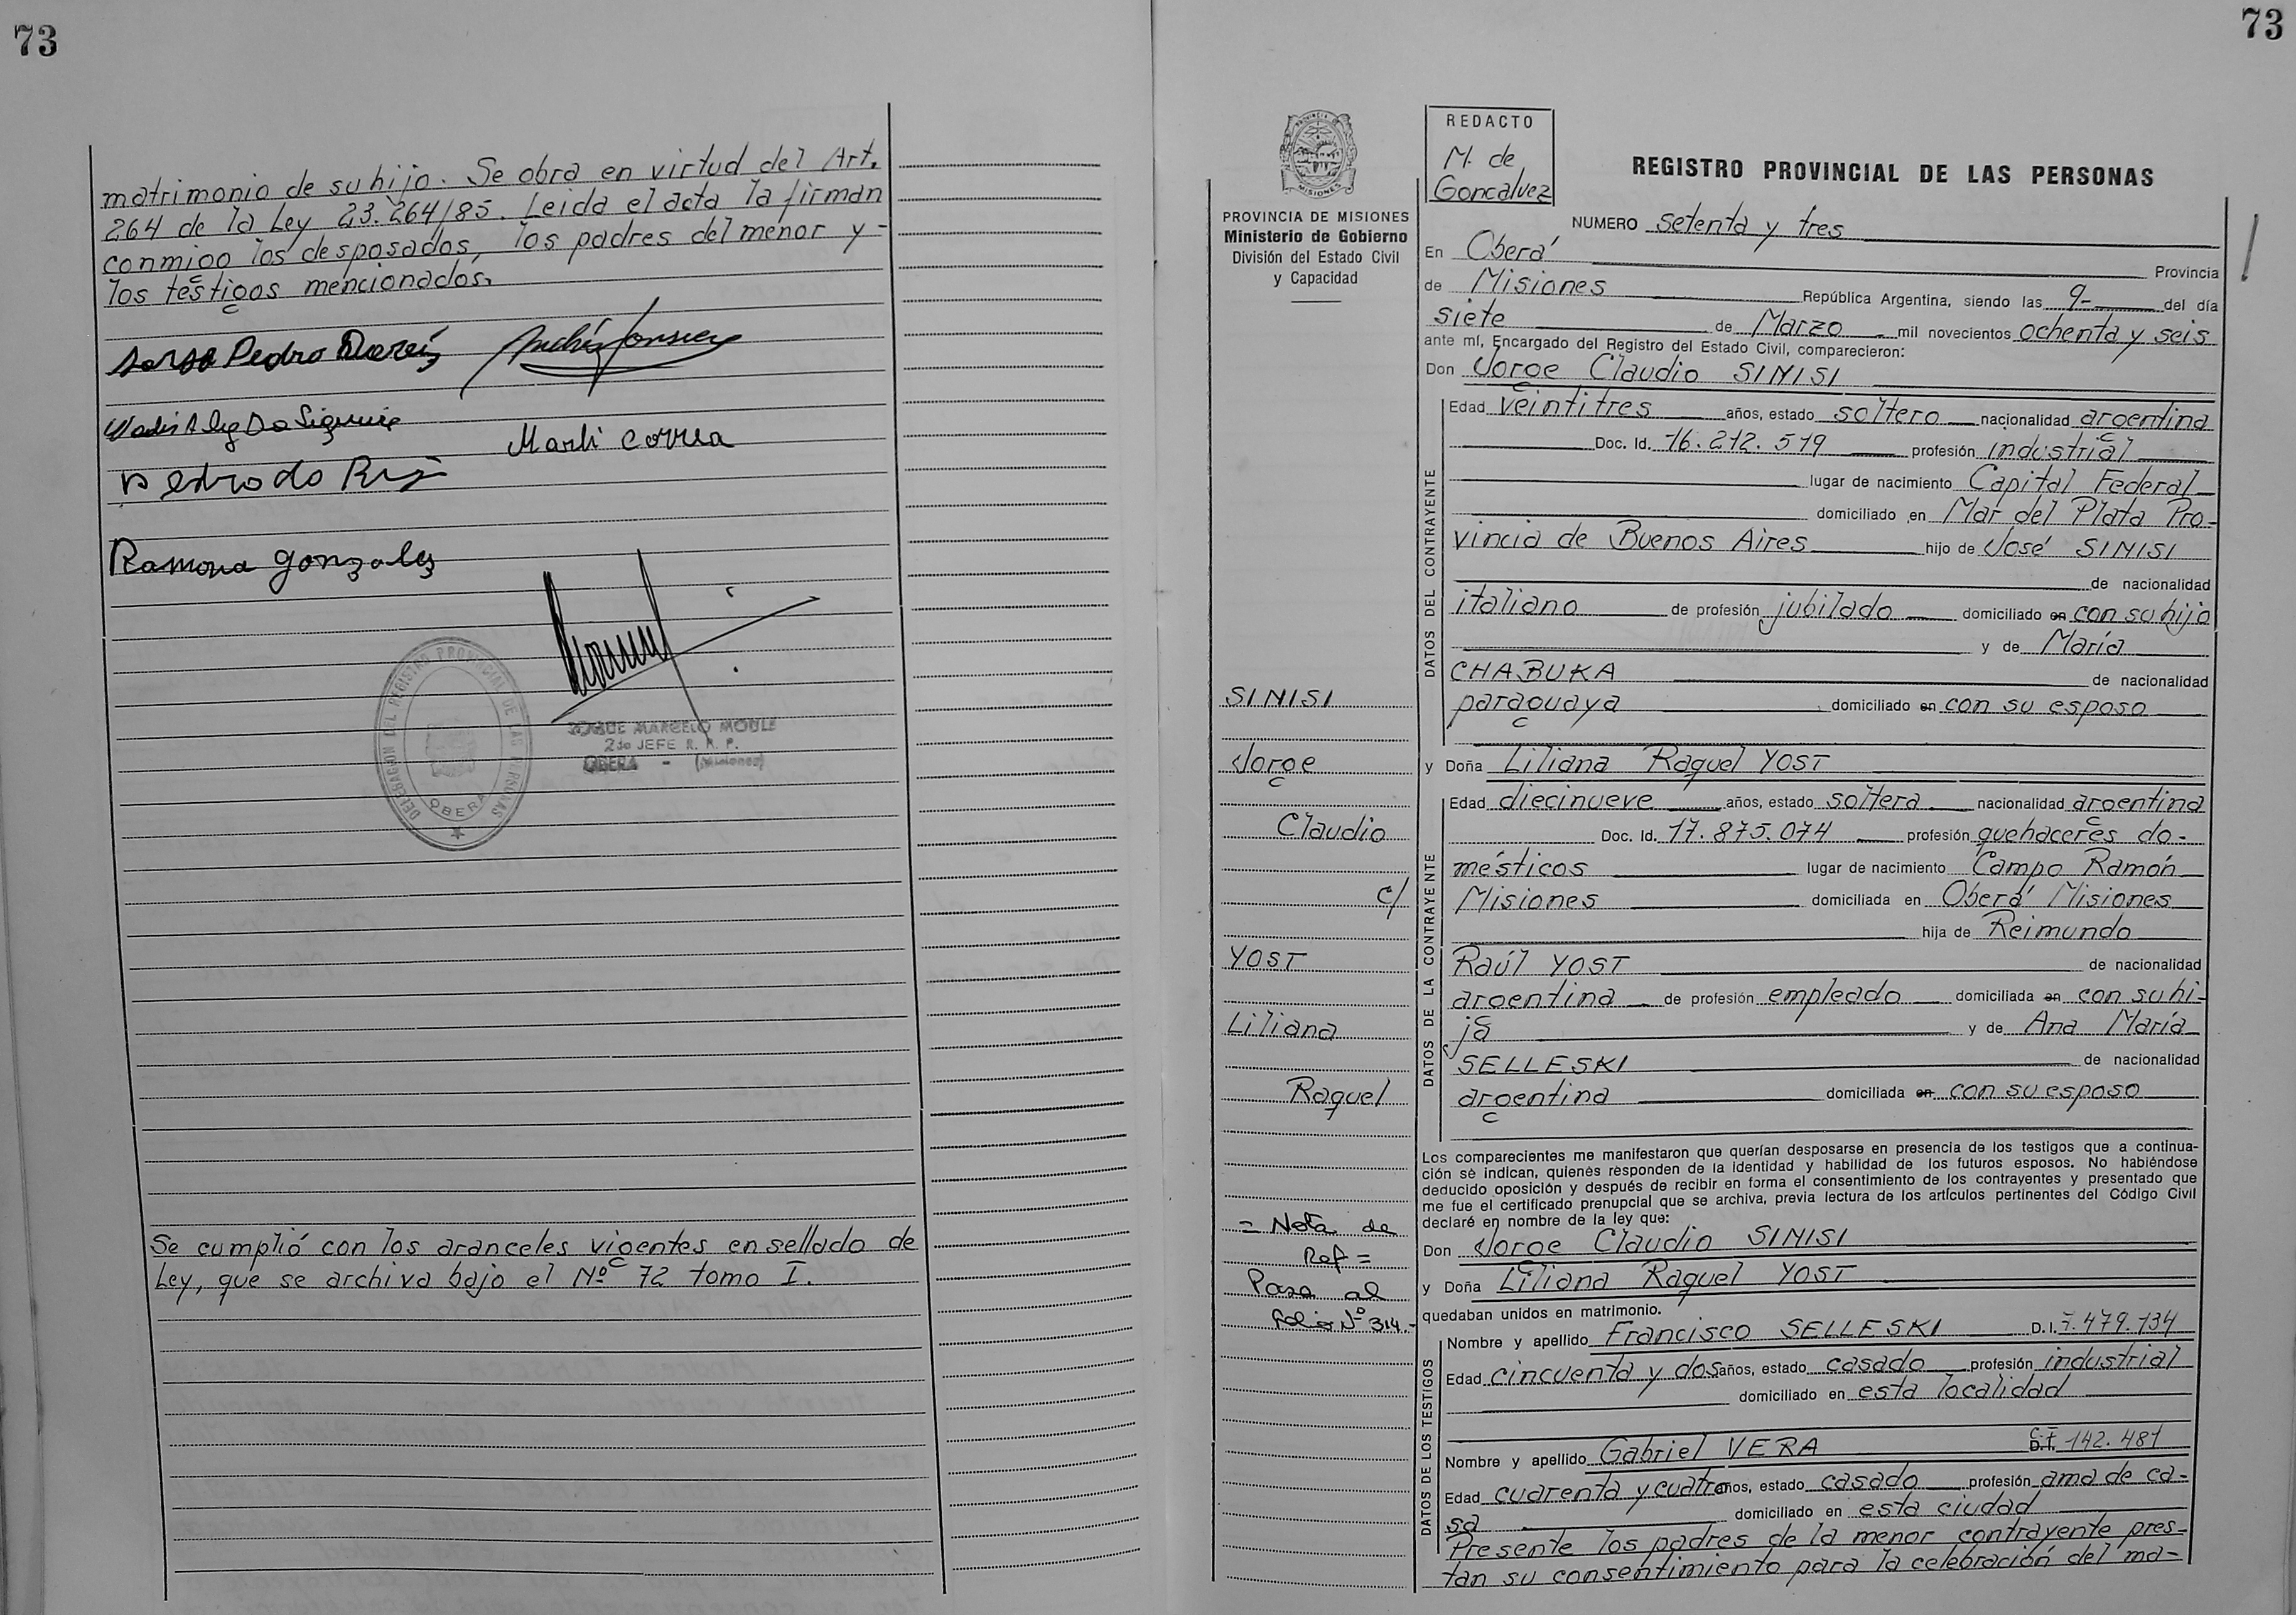 73
matrimonio de su hijo. Se obra en virtud del Art.
264 de la Ley 23.264/85. Leida el acta la firman
conmigo los desposados, los padres del menor y -
los testigos mencionados.
Pedro
Marli Correa
Ramona Gonzalez
DELEGACION DEL REGISTRO PROVINCIAL DE LAS PERSONAS
OBERA
MARCELO
2do JEFE R. P. P.
OBERA - (Misiones)
Se cumplió con los aranceles vigentes en sellado de
Ley, que se archiva bajo el Nº 72 tomo I.
73
PROVINCIA DE MISIONES
Ministerio de Gobierno
División del Estado Civil
y Capacidad
SINISI
Jorge
Claudio
c/
YOST
Liliana
Raquel
= Nota de
Ref =
Pasa al
folio Nº 314.-
REDACTO
M. de
Goncalvez
REGISTRO PROVINCIAL DE LAS PERSONAS
NUMERO setenta y tres
En Oberá Provincia
de Misiones República Argentina, siendo las 9- del día
siete de Marzo - mil novecientos ochenta y seis
ante mí, Encargado del Registro del Estado Civil, comparecieron:
Don Jorge Claudio SINISI
DATOS DEL CONTRAYENTE
Edad veintitres años, estado soltero nacionalidad argentina
Doc. Id. 16.212.519 profesión industrial
lugar de nacimiento Capital Federal
domiciliado en Mar del Plata Pro-
vincia de Buenos Aires hijo de José SINISI
de nacionalidad
italiano de profesión jubilado domiciliado en con su hijo
y de María
CHABUKA de nacionalidad
paraguaya domiciliado en con su esposo
y Doña Liliana Raquel YOST
DATOS DE LA CONTRAYENTE
Edad diecinueve años, estado soltera nacionalidad argentina
Doc. Id. 17.875.074 profesión quehaceres do-
mésticos lugar de nacimiento Campo Ramón
Misiones domiciliada en Oberá Misiones
hija de Reimundo
Raúl YOST de nacionalidad
argentina de profesión empleado domiciliada en con su hi-
ja y de Ana María
SELLESKI de nacionalidad
argentina domiciliada en con su esposo
Los comparecientes me manifestaron que querían desposarse en presencia de los testigos que a continua-
ción se indican, quienes responden de la identidad y habilidad de los futuros esposos. No habiéndose
deducido oposición y después de recibir en forma el consentimiento de los contrayentes y presentado que
me fue el certificado prenupcial que se archiva, previa lectura de los artículos pertinentes del Código Civil
declaré en nombre de la ley que:
Don Jorge Claudio SINISI
y Doña Liliana Raquel YOST
quedaban unidos en matrimonio.
DATOS DE LOS TESTIGOS
Nombre y apellido Francisco SELLESKI D.I. 7.479.134
Edad cincuenta y dos años, estado casado profesión industrial
domiciliado en esta localidad
Nombre y apellido Gabriel VERA D.I. C.I 142.481
Edad cuarenta y cuatro años, estado casado profesión ama de ca-
sa domiciliado en esta ciudad
Presente los padres de la menor contrayente pres-
tan su consentimiento para la celebración del ma-